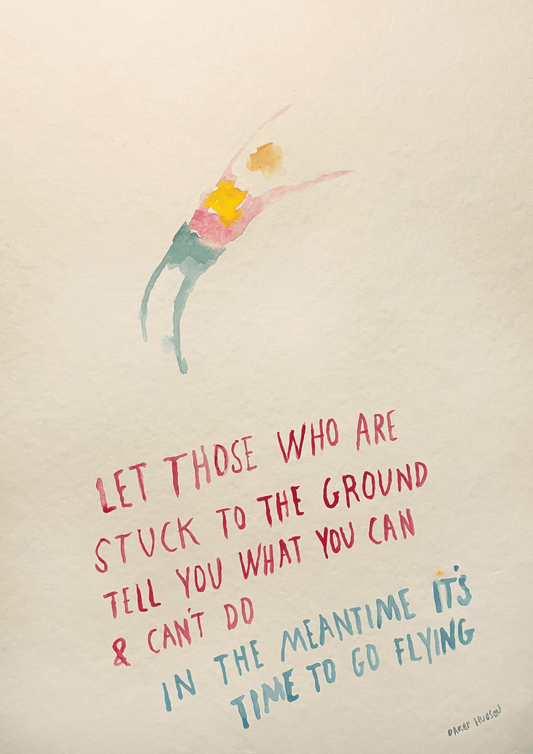 LET THOSE WHO ARE
STUCK TO THE GROUND
TELL YOU WHAT YOU CAN
& CAN'T DO
IN THE MEANTIME IT'S
TIME TO GO FLYING
HUDSON